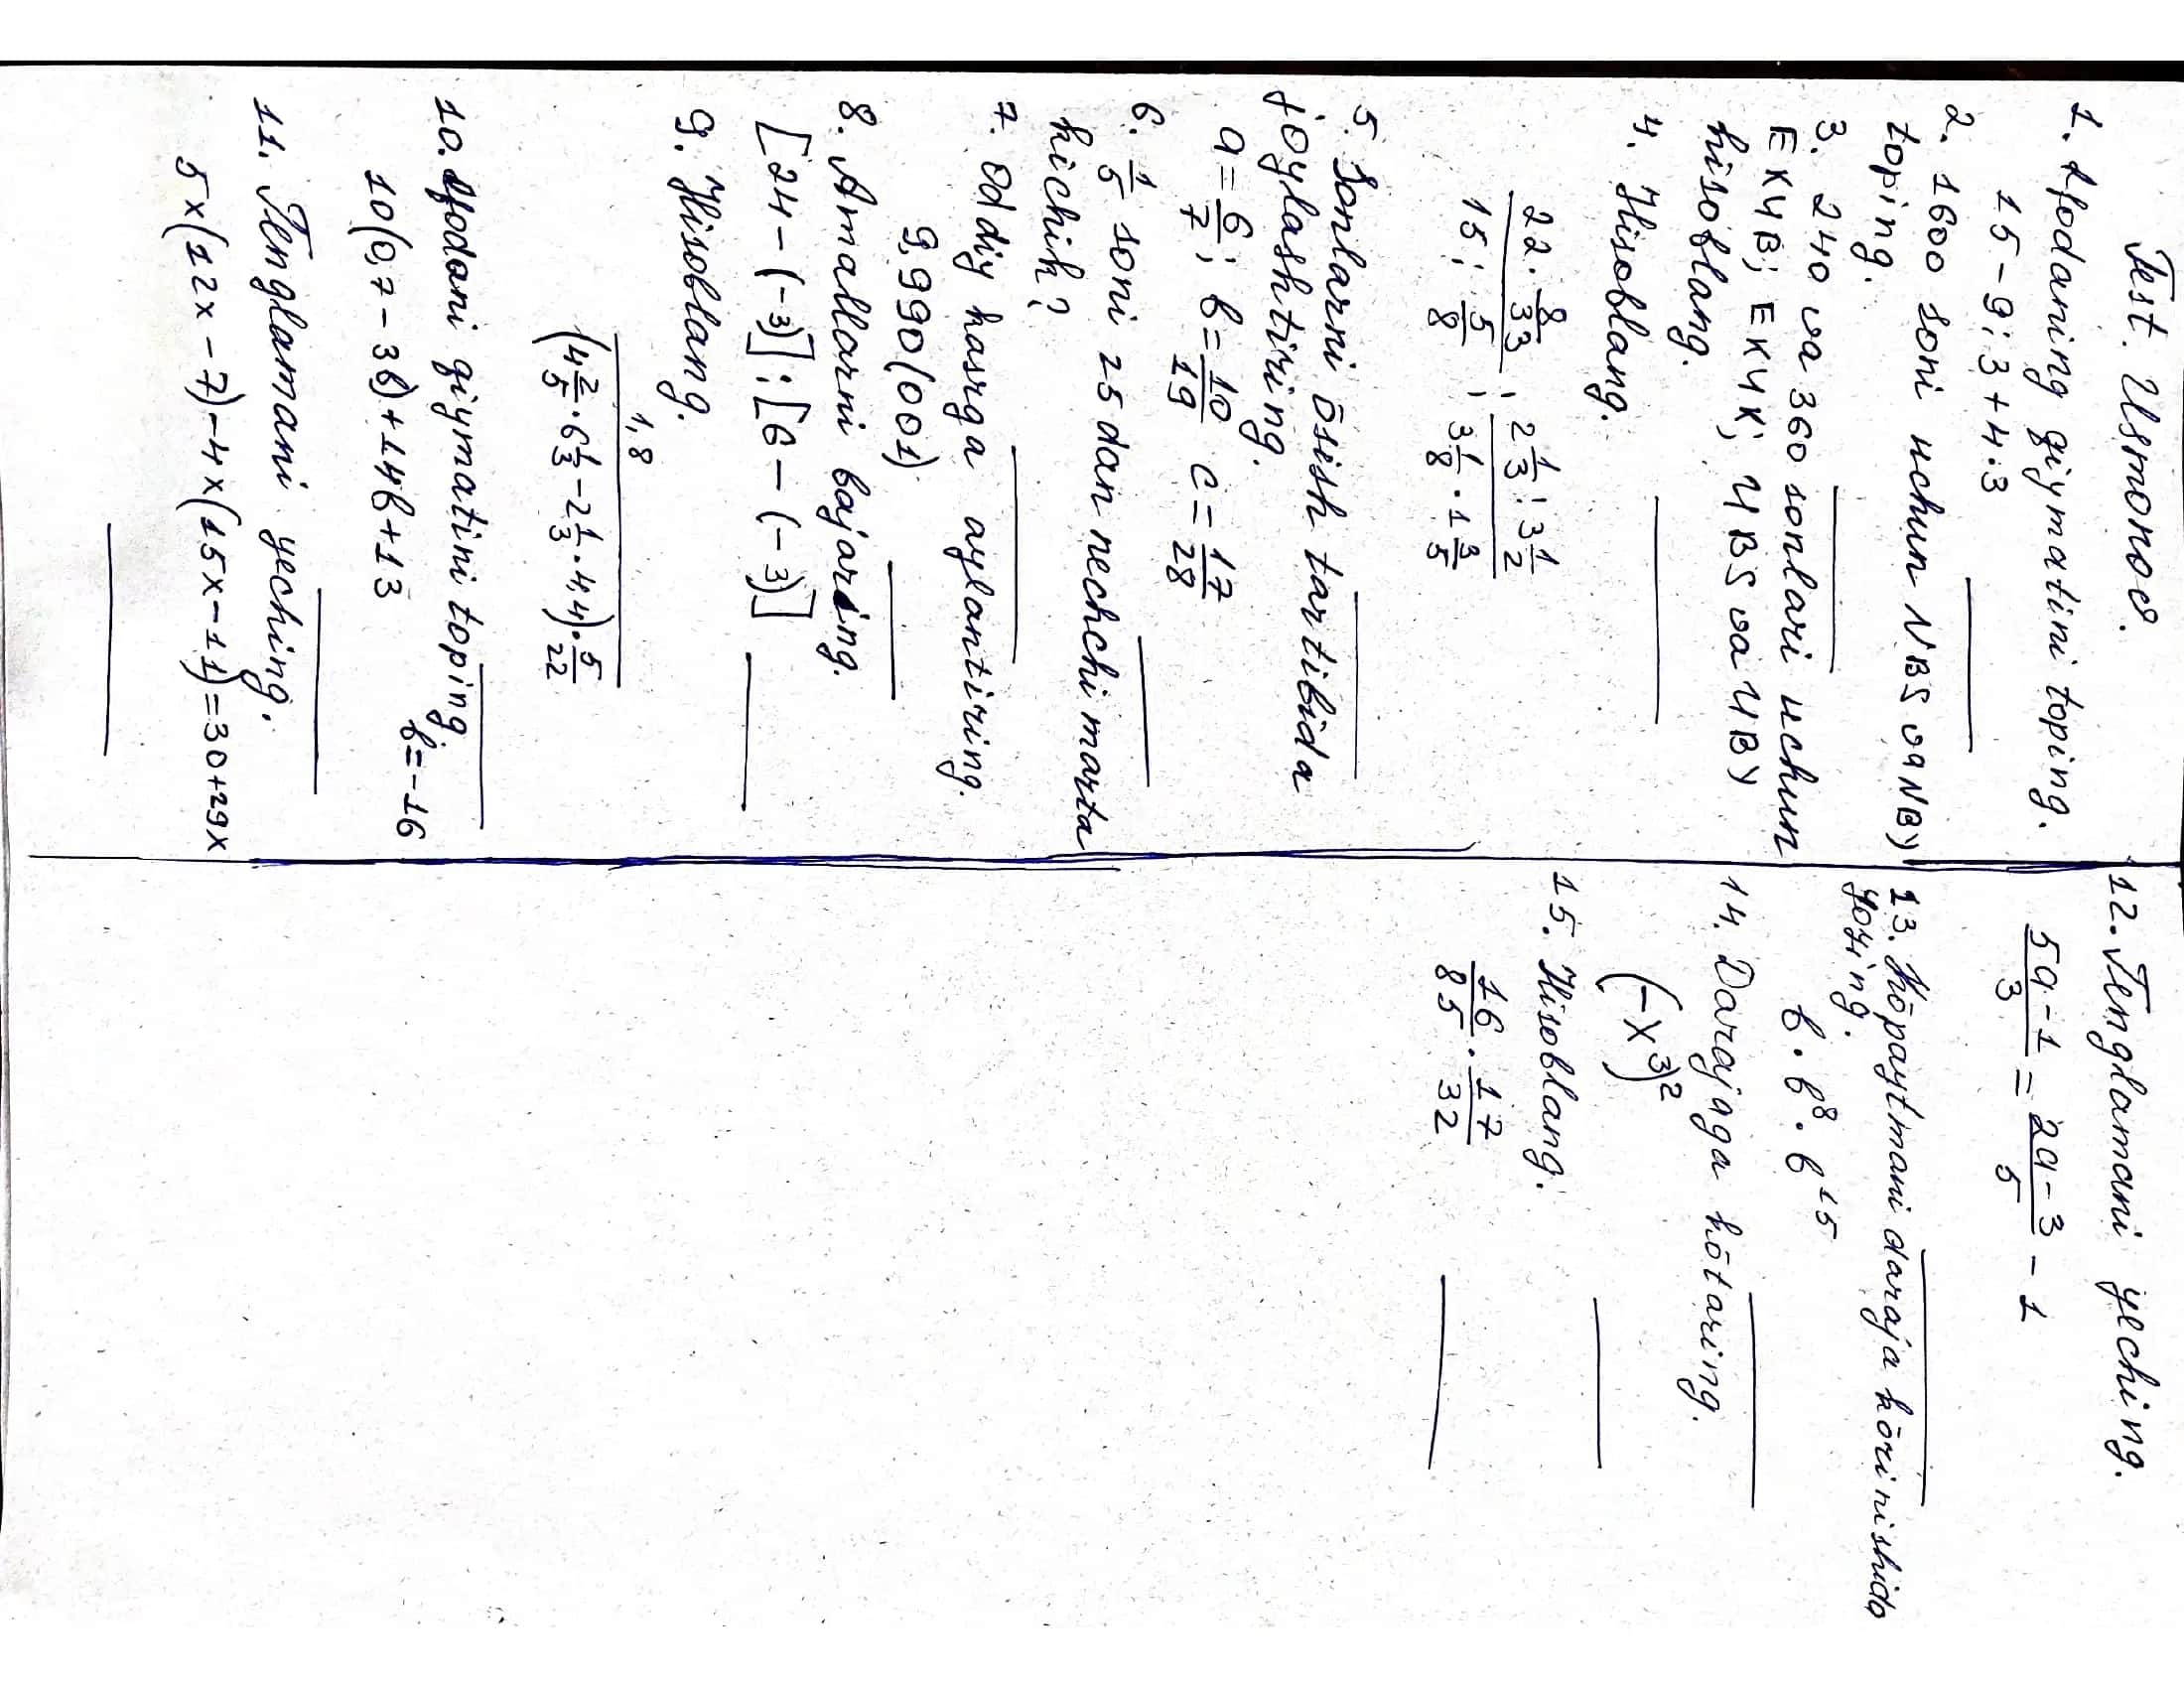 Test. Usmonov.
1. Ifodaning qiymatini toping.
15-9:3+4·3
2. 1600 soni uchun NBS va NBY
toping.
3. 240 va 360 sonlari uchun
EKUB; EKUK; UBS va UBY
hisoblang.
4. Hisoblang.
22·8/33 / 15:5/8 : 2 1/3:3 1/2 / 3 1/8·1 3/5
5. Sonlarni ōsish tartibida
joylashtiring.
a=6/7; b=10/19 c=17/28
6. 1/5 soni 25 dan nechchi marta
kichik?
7. Oddiy kasrga aylantiring.
9,990(001)
8. Amallarni bajaring.
[24-(-3)]:[6-(-3)]
9. Hisoblang.
1,8 / (4 2/5·6 1/3-2 1/3·4,4)·5/22
10. Ifodani qiymatini toping.
10(0,7-3b)+14b+13 b=-16
11. Tenglamani yeching.
5x(12x-7)-4x(15x-11)=30+29x
12. Tenglamani yeching.
5a-1/3=2a-3/5-1
13. Kōpaytmani daraja kōrinishida
yozing.
b·b⁸·b¹⁵
14. Darajaga kōtaring.
(-x³)²
15. Hisoblang.
16/85·17/32